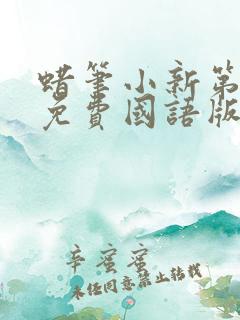 蜡筆小新第
免費國語版
辛蜜蜜
未经同意禁止转载